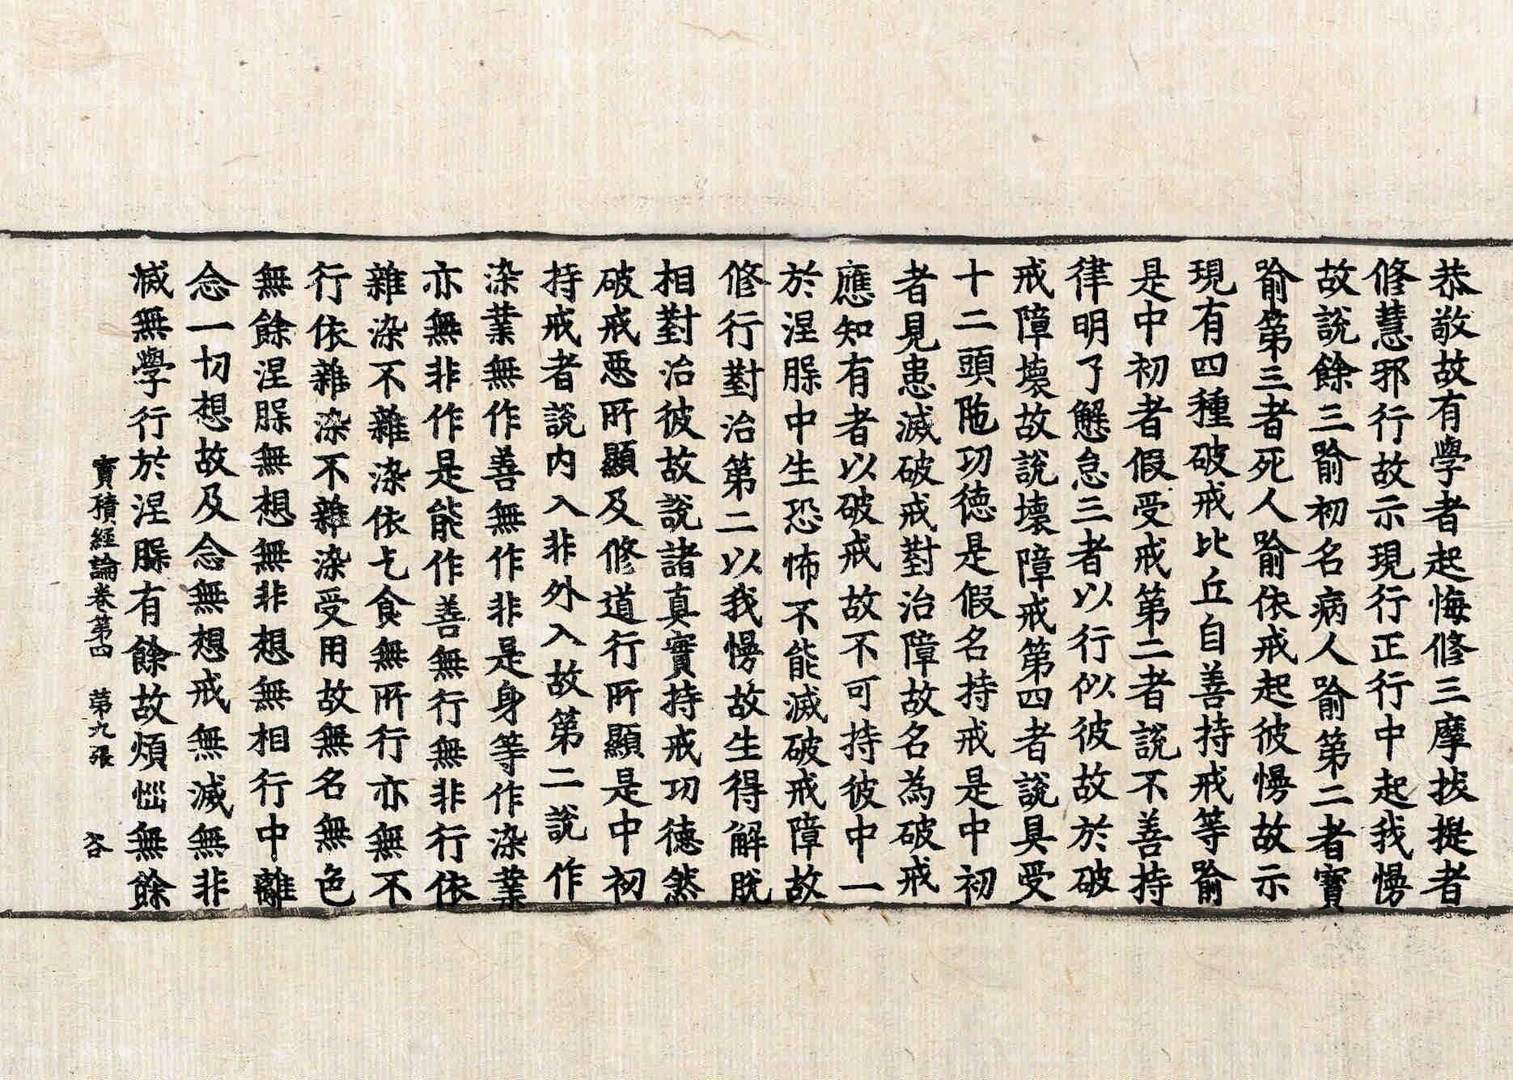 恭敬故有學者起悔修三摩拔提者
修慧邪行故示現行正行中起我慢
故說餘三喻初名病人喻第二者寶
喻第三者死人喻依戒起彼慢故示
現有四種破戒比丘自善持戒等喻
是中初者假受戒第二者說不善持
律明了懈怠三者以行似彼故於破
戒障壞故說壞障戒第四者說具受
十二頭陁功德是假名持戒是中初
者見患滅破戒對治障故名為破戒
應知有者以破戒故不可持彼中一
於涅槃中生恐怖不能滅破戒障故
修行對治第二以我慢故生得解脫
相對治彼故說諸真實持戒功德然
破戒惡所顯及修道行所顯是中初
持戒者說內入非外入故第二說作
染業無作善無作非是身等作染業
亦無非作是能作善無行無非行依
雜染不雜染依乞食無所行亦無不
行依雜染不雜染受用故無名無色
無餘涅槃無想無非想無相行中離
念一切想故及念無想戒無滅無非
滅無學行於涅槃有餘故煩惱無餘
寶積經論卷第四 第九張 咨